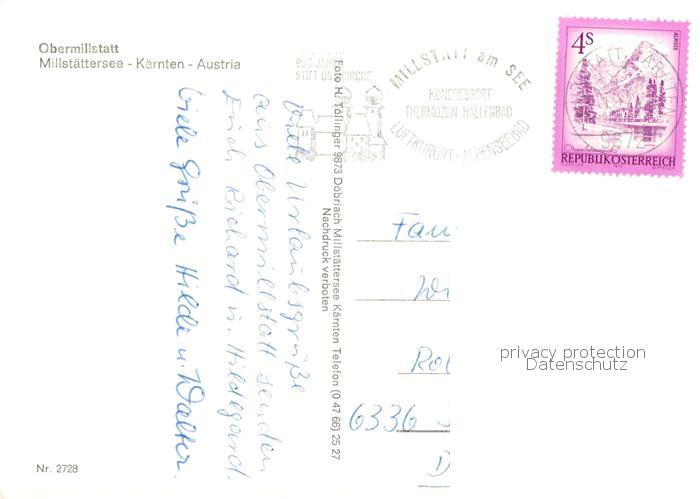 Obermillstatt
Millstättersee - Kärnten - Austria
Viele Urlaubsgrüße
aus Obermillstatt senden
Erich Richard u. Hildegard.
Viele Grüße Hilde u. Walter.
Nr. 2728
Foto H. Töflinger 9873 Döbriach Millstättersee Kärnten Telefon (0 47 66) 25 27
Nachdruck verboten
900 JAHRE
STIFT UND KIRCHE
MILLSTATT am SEE
KONGRESSORT
THERMOZON HALLENBAD
LUFTKURORT - ALPENSEEBAD
4S
ALMSEE
REPUBLIK ÖSTERREICH
Fam
Wi
Rol
6336 -
D
privacy protection
Datenschutz